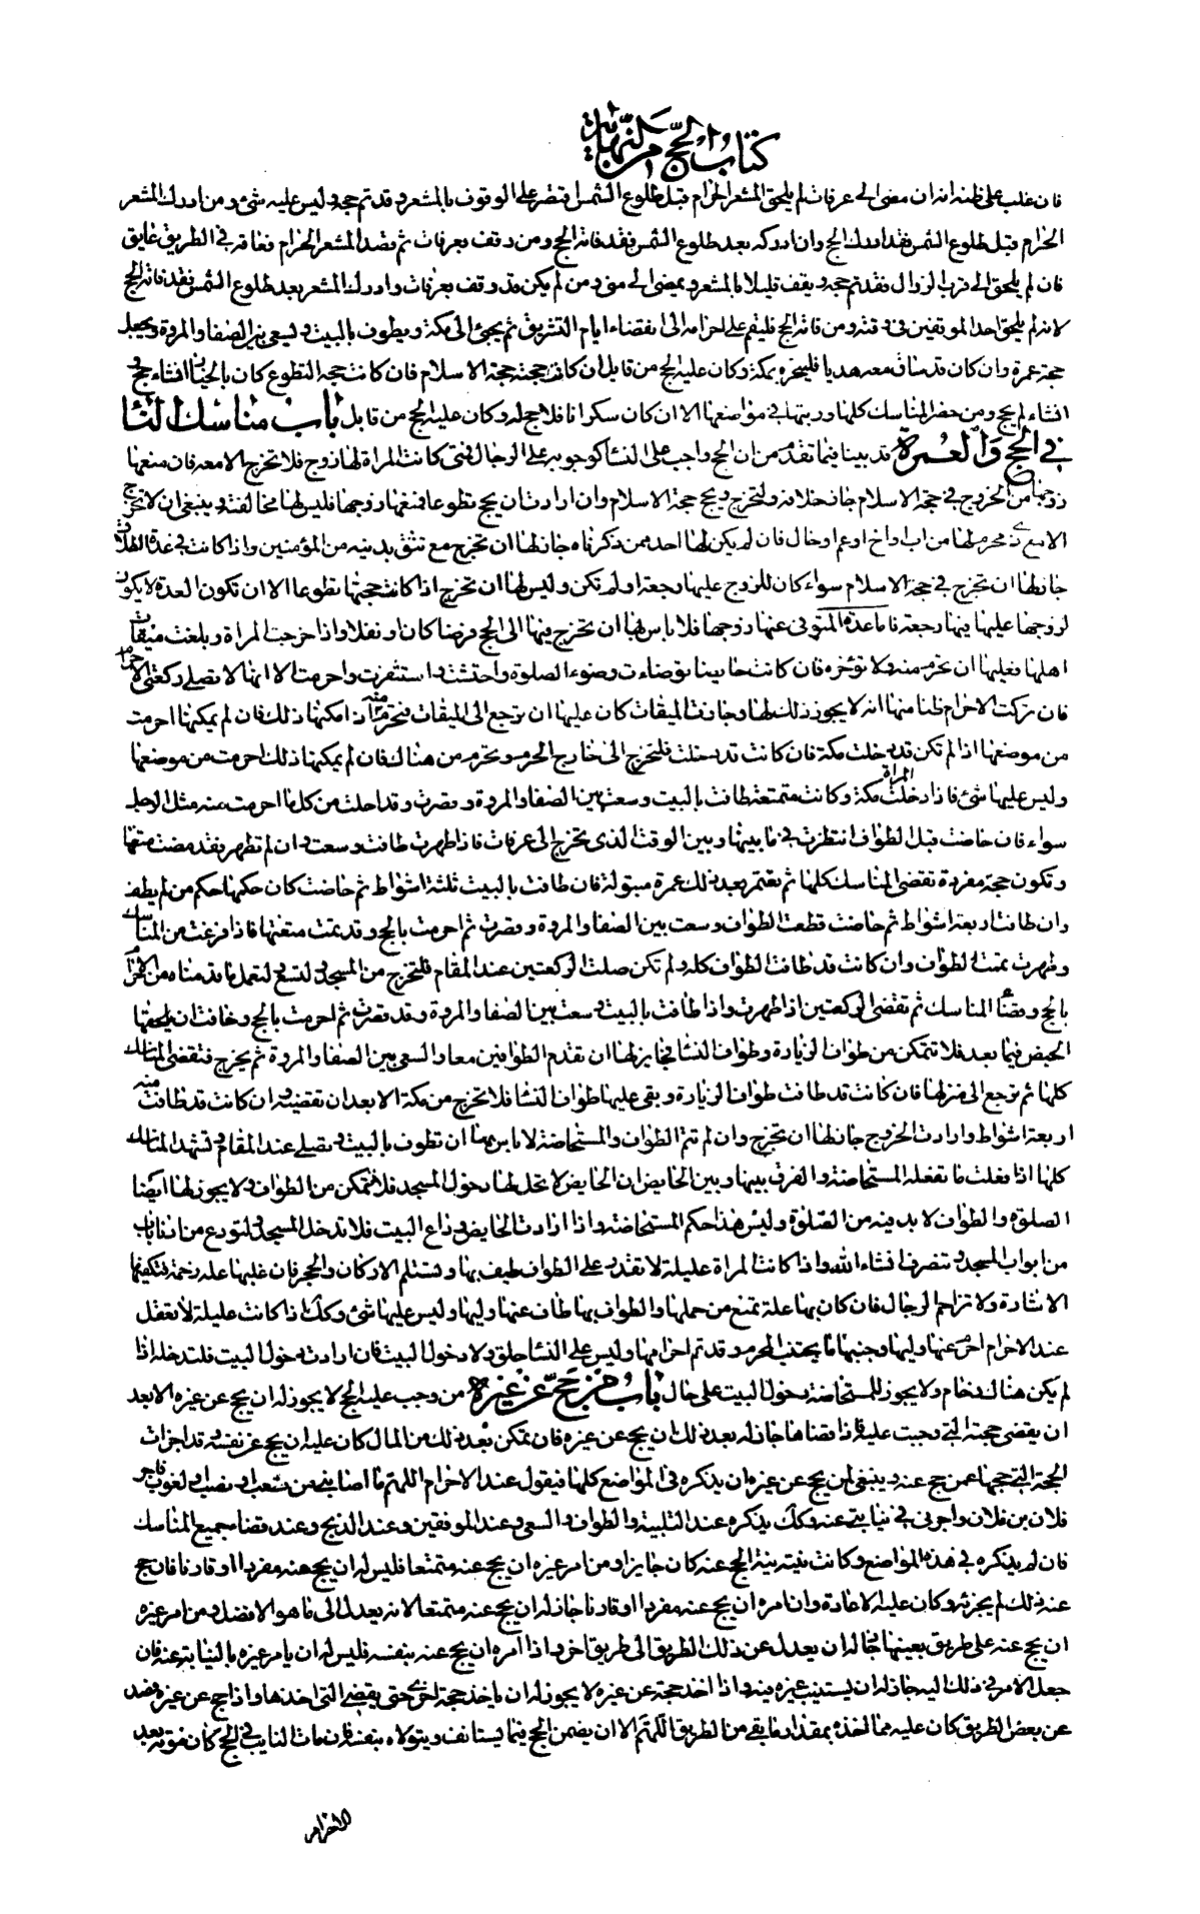 كتاب الحج من النهاية
فان غلب على ظنه انه ان مضى الى عرفات لم يلحق المشعر الحرام قبل طلوع الشمس اقتصر على الوقوف بالمشعر و قد تم حجه و ليس عليه شئ و من ادرك المشعر
الحرام قبل طلوع الشمس فقد ادرك الحج وان ادركه بعد طلوع الشمس فقد فاته الحج ومن وقف بعرفات ثم قصد المشعر الحرام فعاقه في الطريق عايق
فان لم يلحق الى قرب الزوال فقد تم حجه و يقف قليلا بالمشعر و يمضى الى منى و من لم يكن قد وقف بعرفات و ادرك المشعر بعد طلوع الشمس فقد فاته الحج
لانه لم يلحق احد الموقفين فى وقته ومن فاته الحج فليقم على احرامه الى انقضاء ايام التشريق ثم يجئ الى مكة و يطوف بالبيت و يسعى بين الصفا و المروة و يجعل
حجته عمرة وان كان قد ساق معه هديا فلينحره بمكة وكان عليه الحج من قابل ان كانت حجته حجة الاسلام فان كانت حجة التطوع كان بالخيار ان شاء حج و
ان شاء لم يحج ومن حضر المناسك كلها و رتبها في مواضعها الا ان كان سكرانا فلا حج له وكان عليه الحج من قابل باب مناسك النساء
في الحج والعمرة قد بينا فيما تقدم من ان الحج واجب على النساء كوجوبه على الرجال فمتى كانت المراة لها زوج فلا تخرج الا معه فان منعها
زوجها من الخروج في حجة الاسلام جاز خلافه ولتخرج و تحج حجة الاسلام وان ارادت ان يحج تطوعا فمنعها زوجها فليس لها مخالفته و ينبغى ان لا تخرج
الا مع ذى محرم لها من اب او اخ او عم او خال فان لم يكن لها احد ممن ذكرناه جاز لها ان تخرج مع تثق بدينه من المؤمنين واذا كانت في عدة الطلاق
جاز لها ان تخرج في حجة الاسلام سواء كان للزوج عليها رجعة او لم تكن و ليس لها ان تخرج اذا كانت حجتها تطوعا الا ان تكون العدة لا يكون
لزوجها عليها فيها رجعة فاما عدة المتوفى عنها زوجها فلا باس لها ان تخرج فيها الى الحج فرضا كان او نفلا واذا خرجت المراة و بلغت ميقات
اهلها فعليها ان تحرم منه و لا تؤخره فان كانت حايضا توضات وضوء الصلوة واحتشت و استثفرت واحرمت الا انها لا تصلى ركعتى الاحرام
فان تركت الاحرام ظنا منها انه لا يجوز ذلك لها و جازت الميقات كان عليها ان ترجع الى الميقات فتحرم منه اذا امكنها ذلك فان لم يمكنها احرمت
من موضعها اذا لم تكن قد دخلت مكة فان كانت قد دخلت فلتخرج الى خارج الحرم و تحرم من هناك فان لم يمكنها ذلك احرمت من موضعها
و ليس عليها شئ فاذا دخلت المراة مكة و كانت متمتعة طافت بالبيت و سعت بين الصفا و المروة و قصرت و قد احلت من كل ما احرمت منه مثل الرجل
سواء فان حاضت قبل الطواف انتظرت في ما بينها و بين الوقت الذى تخرج الى عرفات فاذا طهرت طافت وسعت و ان لم تطهر فقد مضت متعتها
و تكون حجة مفردة تقضى المناسك كلها ثم تعتمر بعد ذلك عمرة مبتولة فان طافت بالبيت ثلثة اشواط ثم حاضت كان حكمها حكم من لم يطف
وان طافت اربعة اشواط ثم حاضت قطعت الطواف و سعت بين الصفا والمروة و قصرت ثم احرمت بالحج وقد تمت متعتها فاذا فرغت من المناسك
وطهرت تمت الطواف وان كانت قد طافت الطواف كله و لم تكن صلت الركعتين عند المقام فلتخرج من المسجد و لتسع و لتعمل ما قدمناه من الاحرام
بالحج و قضاء المناسك ثم تقضى الركعتين اذا طهرت واذا طافت بالبيت و سعت بين الصفا و المروة و قد قصرت ثم احرمت بالحج و خافت ان يلحقها
الحيض فيما بعد فلا تتمكن من طواف الزيارة و طواف النساء فجايز لها ان تقدم الطوافين معا و السعى بين الصفا و المروة ثم يخرج فتقضى المناسك
كلها ثم ترجع الى منزلها فان كانت قد طافت طواف الزيارة و بقى عليها طواف النساء فلا تخرج من مكة الا بعد ان تقضيه و ان كانت قد طافت منه
اربعة اشواط و ارادت الخروج جاز لها ان تخرج وان لم تتم الطواف والمستحاضة لا باس بها ان تطوف بالبيت و تصلى عند المقام و تشهد المناسك
كلها اذا فعلت ما تفعله المستحاضة و الفرق بينها و بين الحايض ان الحايض لا يحل لها دخول المسجد فلا تتمكن من الطواف و لا يجوز لها ايضا
الصلوة و الطواف لا بد فيه من الصلوة و ليس هذا حكم المستحاضة واذا ارادت الحايض وداع البيت فلا تدخل المسجد و لتودع من ادنى باب
من ابواب المسجد و تنصرف ان شاء الله واذا كانت المراة عليلة لا تقدر على الطواف طيف بها و تستلم الاركان و الحجر فان غلبها عله زحمة فتكفيها
الاشارة ولا تزاحم الرجال فان كان بها علة تمنع من حملها والطواف بها طاف عنها وليها و ليس عليها شئ و كذلك اذا كانت عليلة لا تعقل
عند الاحرام احرم عنها وليها و جنبها ما يجتنب المحرم و قد تم احرامها و ليس على النساء حلق و لا دخول البيت فان ارادت دخول البيت فلتدخله اذا
لم يكن هناك زحام ولا يجوز للمستحاضة دخول البيت على حال باب من حج عن غيره من وجب عليه الحج لا يجوز له ان يحج عن غيره الا بعد
ان يقضى حجته التى وجبت عليه فاذا قضاها جاز له بعد ذلك ان يحج عن غيره فان تمكن بعد ذلك من المال كان عليه ان يحج عن نفسه و قد اجزات
الحجة التى حجها عمن حج عنه و ينبغى لمن يحج عن غيره ان يذكره فى المواضع كلها فيقول عند الاحرام اللهم ما اصابنى من شعب او نصب او لغوب فاجر
فلان بن فلان و اجرنى في نيابتى عنه و كذلك يذكره عند التلبية و الطواف و السعى و عند الموقفين و عند الذبح و عند قضا جميع المناسك
فان لم يذكره في هذه المواضع و كانت نيته نية الحج عنه كان جايزا و من امر غيره ان يحج عنه متمتعا فليس له ان يحج عنه مفردا او قارنا فان حج
عنه ذلك لم يجزئه و كان عليه الاعادة وان امره ان يحج عنه مفردا او قارنا جاز له ان يحج عنه متمتعا لانه يعدل الى ما هو الافضل و من امر غيره
ان يحج عنه على طريق بعينها جاز له ان يعدل عن ذلك الطريق الى طريق اخر و اذا امره ان يحج عنه بنفسه فليس له ان يامر غيره بالنيابة عنه فان
جعل الامر في ذلك اليه جاز له ان يستنيب غيره فيه و اذا اخذ حجة عن غيره لا يجوز له ان ياخذ حجة اخرى حتى يقضى التى اخذها و اذا حج عن غيره فصد
عن بعض الطريق كان عليه مما اخذه بمقدار ما بقى من الطريق اللهم الا ان يضمن الحج فيما يستانف و يتولاه بنفسه فان مات النايب في الحج كان موته بعد
الاحرام